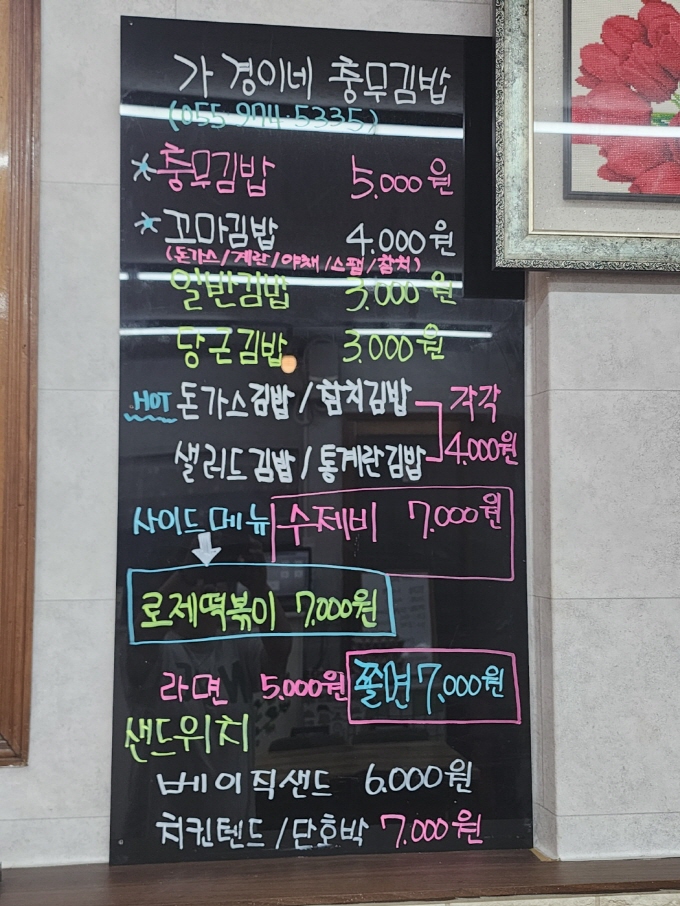 가경이네 충무김밥
(055-974-5335)
*충무김밥 5,000원
*꼬마김밥 4.000원
(돈가스/계란/야채/스팸/참치)
일반김밥 3,000원
당근김밥 3,000원
HOT 돈가스김밥/참치김밥 각각
샐러드김밥/통계란김밥 4,000원
사이드메뉴 수제비 7,000원
로제떡볶이 7,000원
라면 5,000원 쫄면 7,000원
샌드위치
베이직샌드 6,000원
치킨텐드/단호박 7,000원